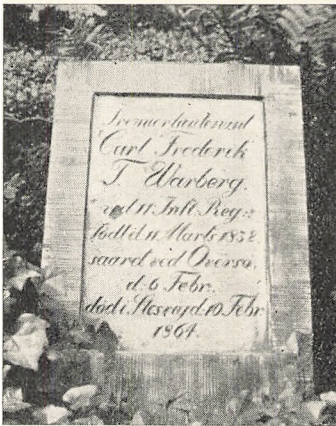 Premierlieutenant
Carl Frederik
T. Warberg.
ved 11 Inft. Reg:
født d. 11 Marts 1832.
saaret ved Oversø.
d. 6 Febr.
død i Slesvig d. 10 Febr
1864.